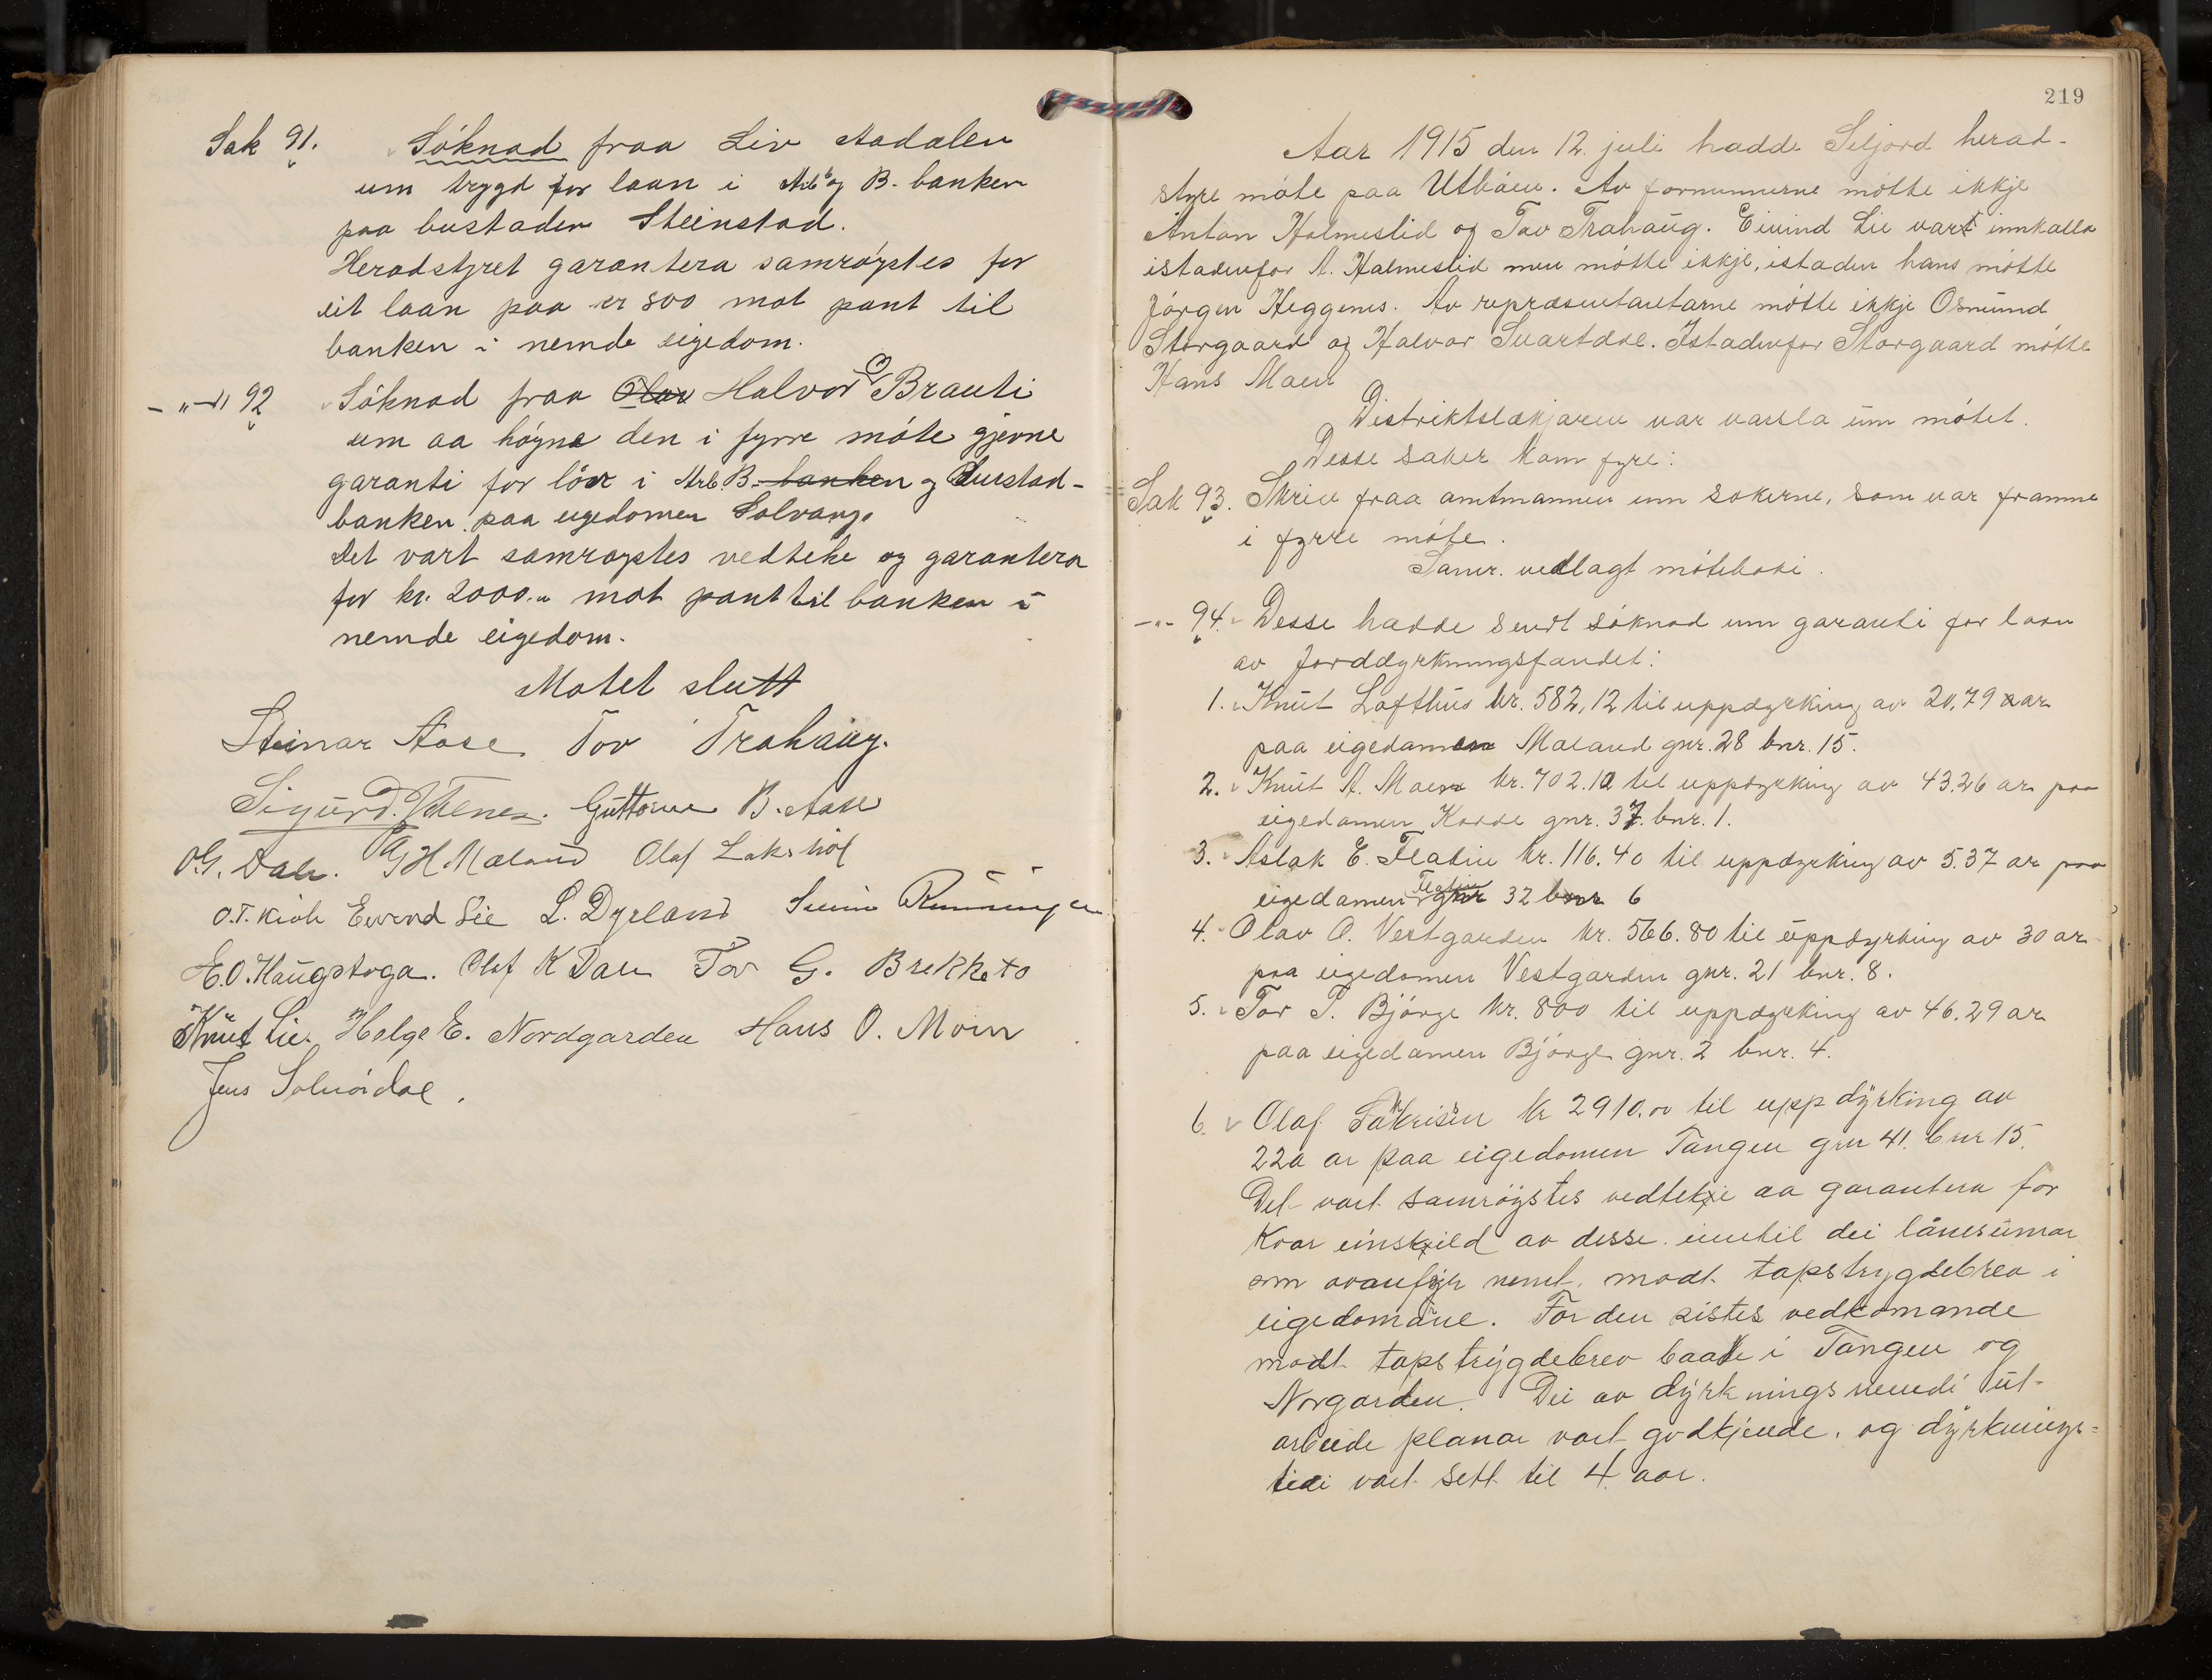 Sak 91. Söknad fraa Liv Aadalen
um trygd for laan i Arb. og B. banken
paa bustaden Steinstad.
Heradstyret garantera samröystes for
eit laan paa kr 800 mot pant til
banken i nemde eigedom.
- " - 92 Söknad fraa Olav Halvor O Brauti
um aa högne den i fyrre möte gjevne
garanti for lån i Arb. B. banken og Bustad-
banken paa eigedomen Solvang.
Det vart samrøystes vedteke og garantera
for kr. 2000.- mot pant til banken i
nemde eigedom.
Motet slutt
Steinar Aase Tov Trahaug.
Sigurd Utenes. Guttorm B. Aase
O.G. Dale. H. Mæland Olaf Lakshol
O.T. Kivle Eivind Lie L. Dyrland Svein Runningen
E.O. Haugstoga. Olaf K Dale Tov G. Brekketo
Knut Lie. Helge E. Nordgarden Hans O. Moen
Jens Solverdal.
219
Aar 1915 den 12. juli hadde Seljord herad-
styre möte paa Utbøen. Av formennerne møtte ikkje
Anton Holmeslid og Tov Trahaug. Eivind Lie vart innkalla
istadenfor A. Halmeslid men møtte ikkje, istaden hans møtte
Jörgen Heggenes. Av representantarne møtte ikkje Osmund
Storgaard og Halvor Svartdal. Istadenfor Storgaard møtte
Hans Moen
Distriktslækjaren var varsla um møtet.
Desse saker kom fyre:
Sak 93. Skriv fraa amtmannen um sakerne, som var framme
i fyrre møte.
Samr. vedlagt møteboki.
- " - 94. Desse hadde sendt söknad um garanti for laan
av Jorddyrkningsfondet:
1. Knut Lofthus kr. 582,12 til uppdyrking av 20,79 aar
paa eigedomen Mæland gnr. 28 bnr. 15.
2. Knut A. Moen kr. 702.10 til uppdyrking av 43.26 ar paa
eigedomen Kaase gnr. 37. bnr. 1.
3. Aslak E. Flatin kr. 116.40 til uppdyrking av 5.37 ar paa
eigedomen Flatin gnr 32 bnr 6
4. Olav O. Vestgarden kr. 566.80 til uppdyrking av 30 ar
paa eigedomen Vestgarden gnr. 21 bnr. 8.
5. Tor T. Bjørge kr. 800 til uppdyrking av 46.29 ar
paa eigedomen Bjørge gnr. 2 bnr. 4.
6. Olaf Sakrisen kr 2910.00 til uppdyrking av
220 ar paa eigedomen Tangen gnr 41. bnr 15.
Det vart samröystes vedtekje aa garantera for
kvar einskild av desse inntil dei lånesumar
som ovanfyr nemt. modt. tapstrygdebrev i
eigedomane. For den sistes vedkomande
modt tapstrygdebrev baade i Tangen og
Norgarden. Dei av dyrkningsnemdi ut-
arbeide planar vart godkjende. og dyrknings-
tidi vart sett til 4. aar.